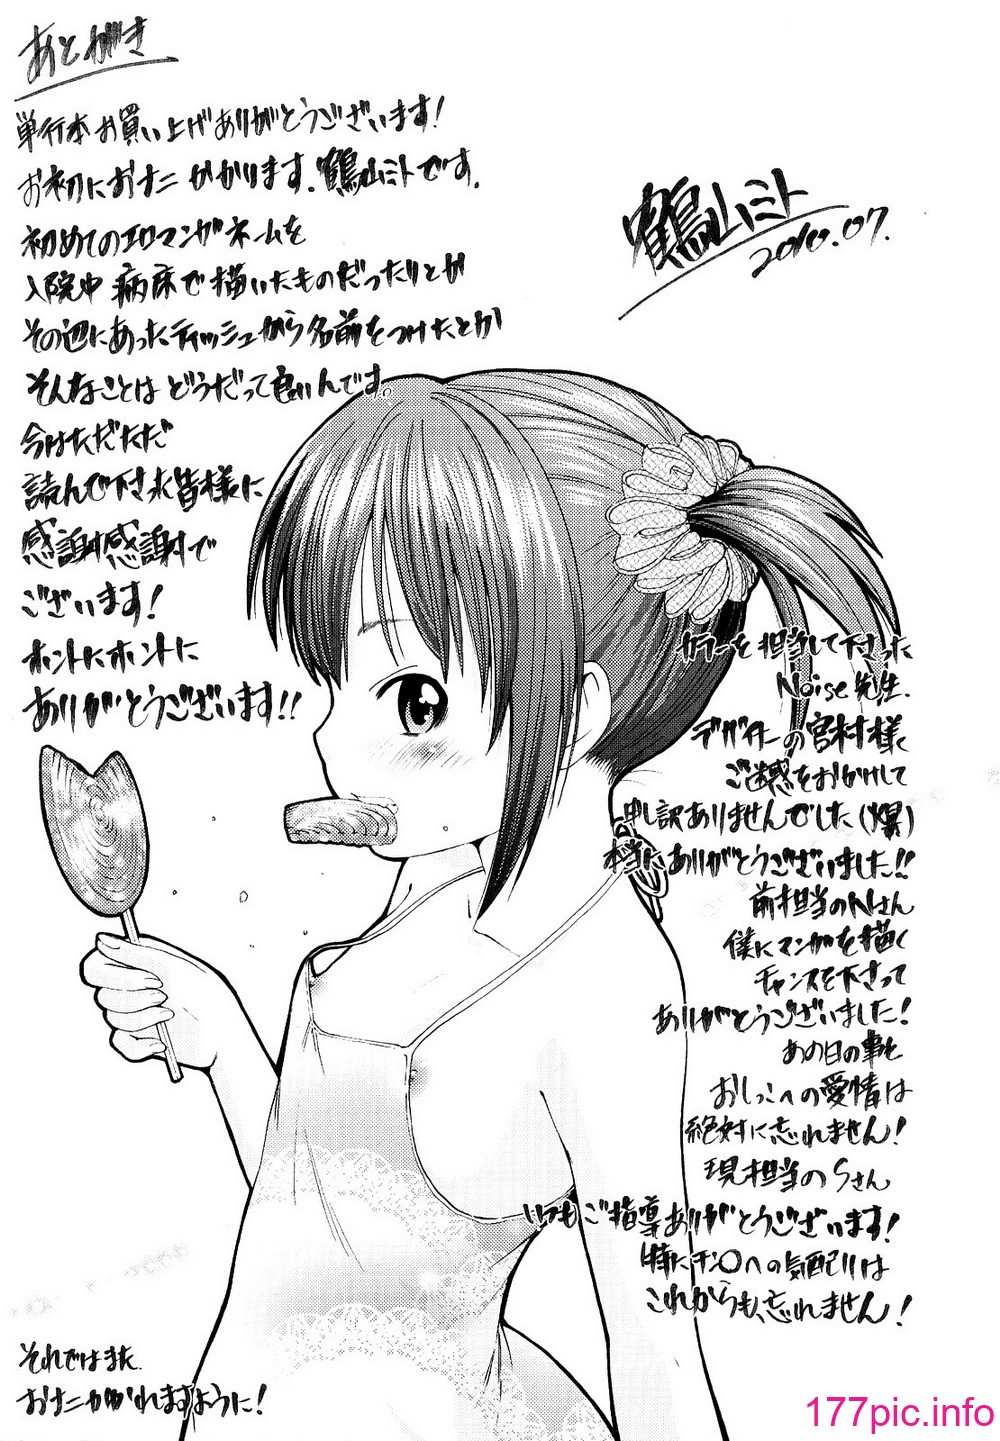 あとがき
単行本お買い上げありがとうございます!
お初におナニかかります。鶴山ミトです。
初めてのエロマンガネームを
入院中病床で描いたものだったりとか
その辺にあったティッシュから名前をつけたとか
そんなことはどうだって良いんです。
今はただただ
読んで下さる皆様に
感謝感謝で
ございます!
ホントにホントに
ありがとうございます!!
鶴山ミト
2010.07.
カラーを担当して下さった
Noise先生、
デザイナーの宮村様、
ご迷惑をおかけして
申し訳ありませんでした(爆)
本当にありがとうございました!!
前担当のNさん
僕にマンガを描く
チャンスを下さって
ありがとうございました!
あの日の事と
おしっこへの愛情は
絶対に忘れません!
現担当のSさん
いつもご指導ありがとうございます!
特にチ○への気配りは
これからも忘れません!
それではまた
おナニかかれますように!
177pic.info